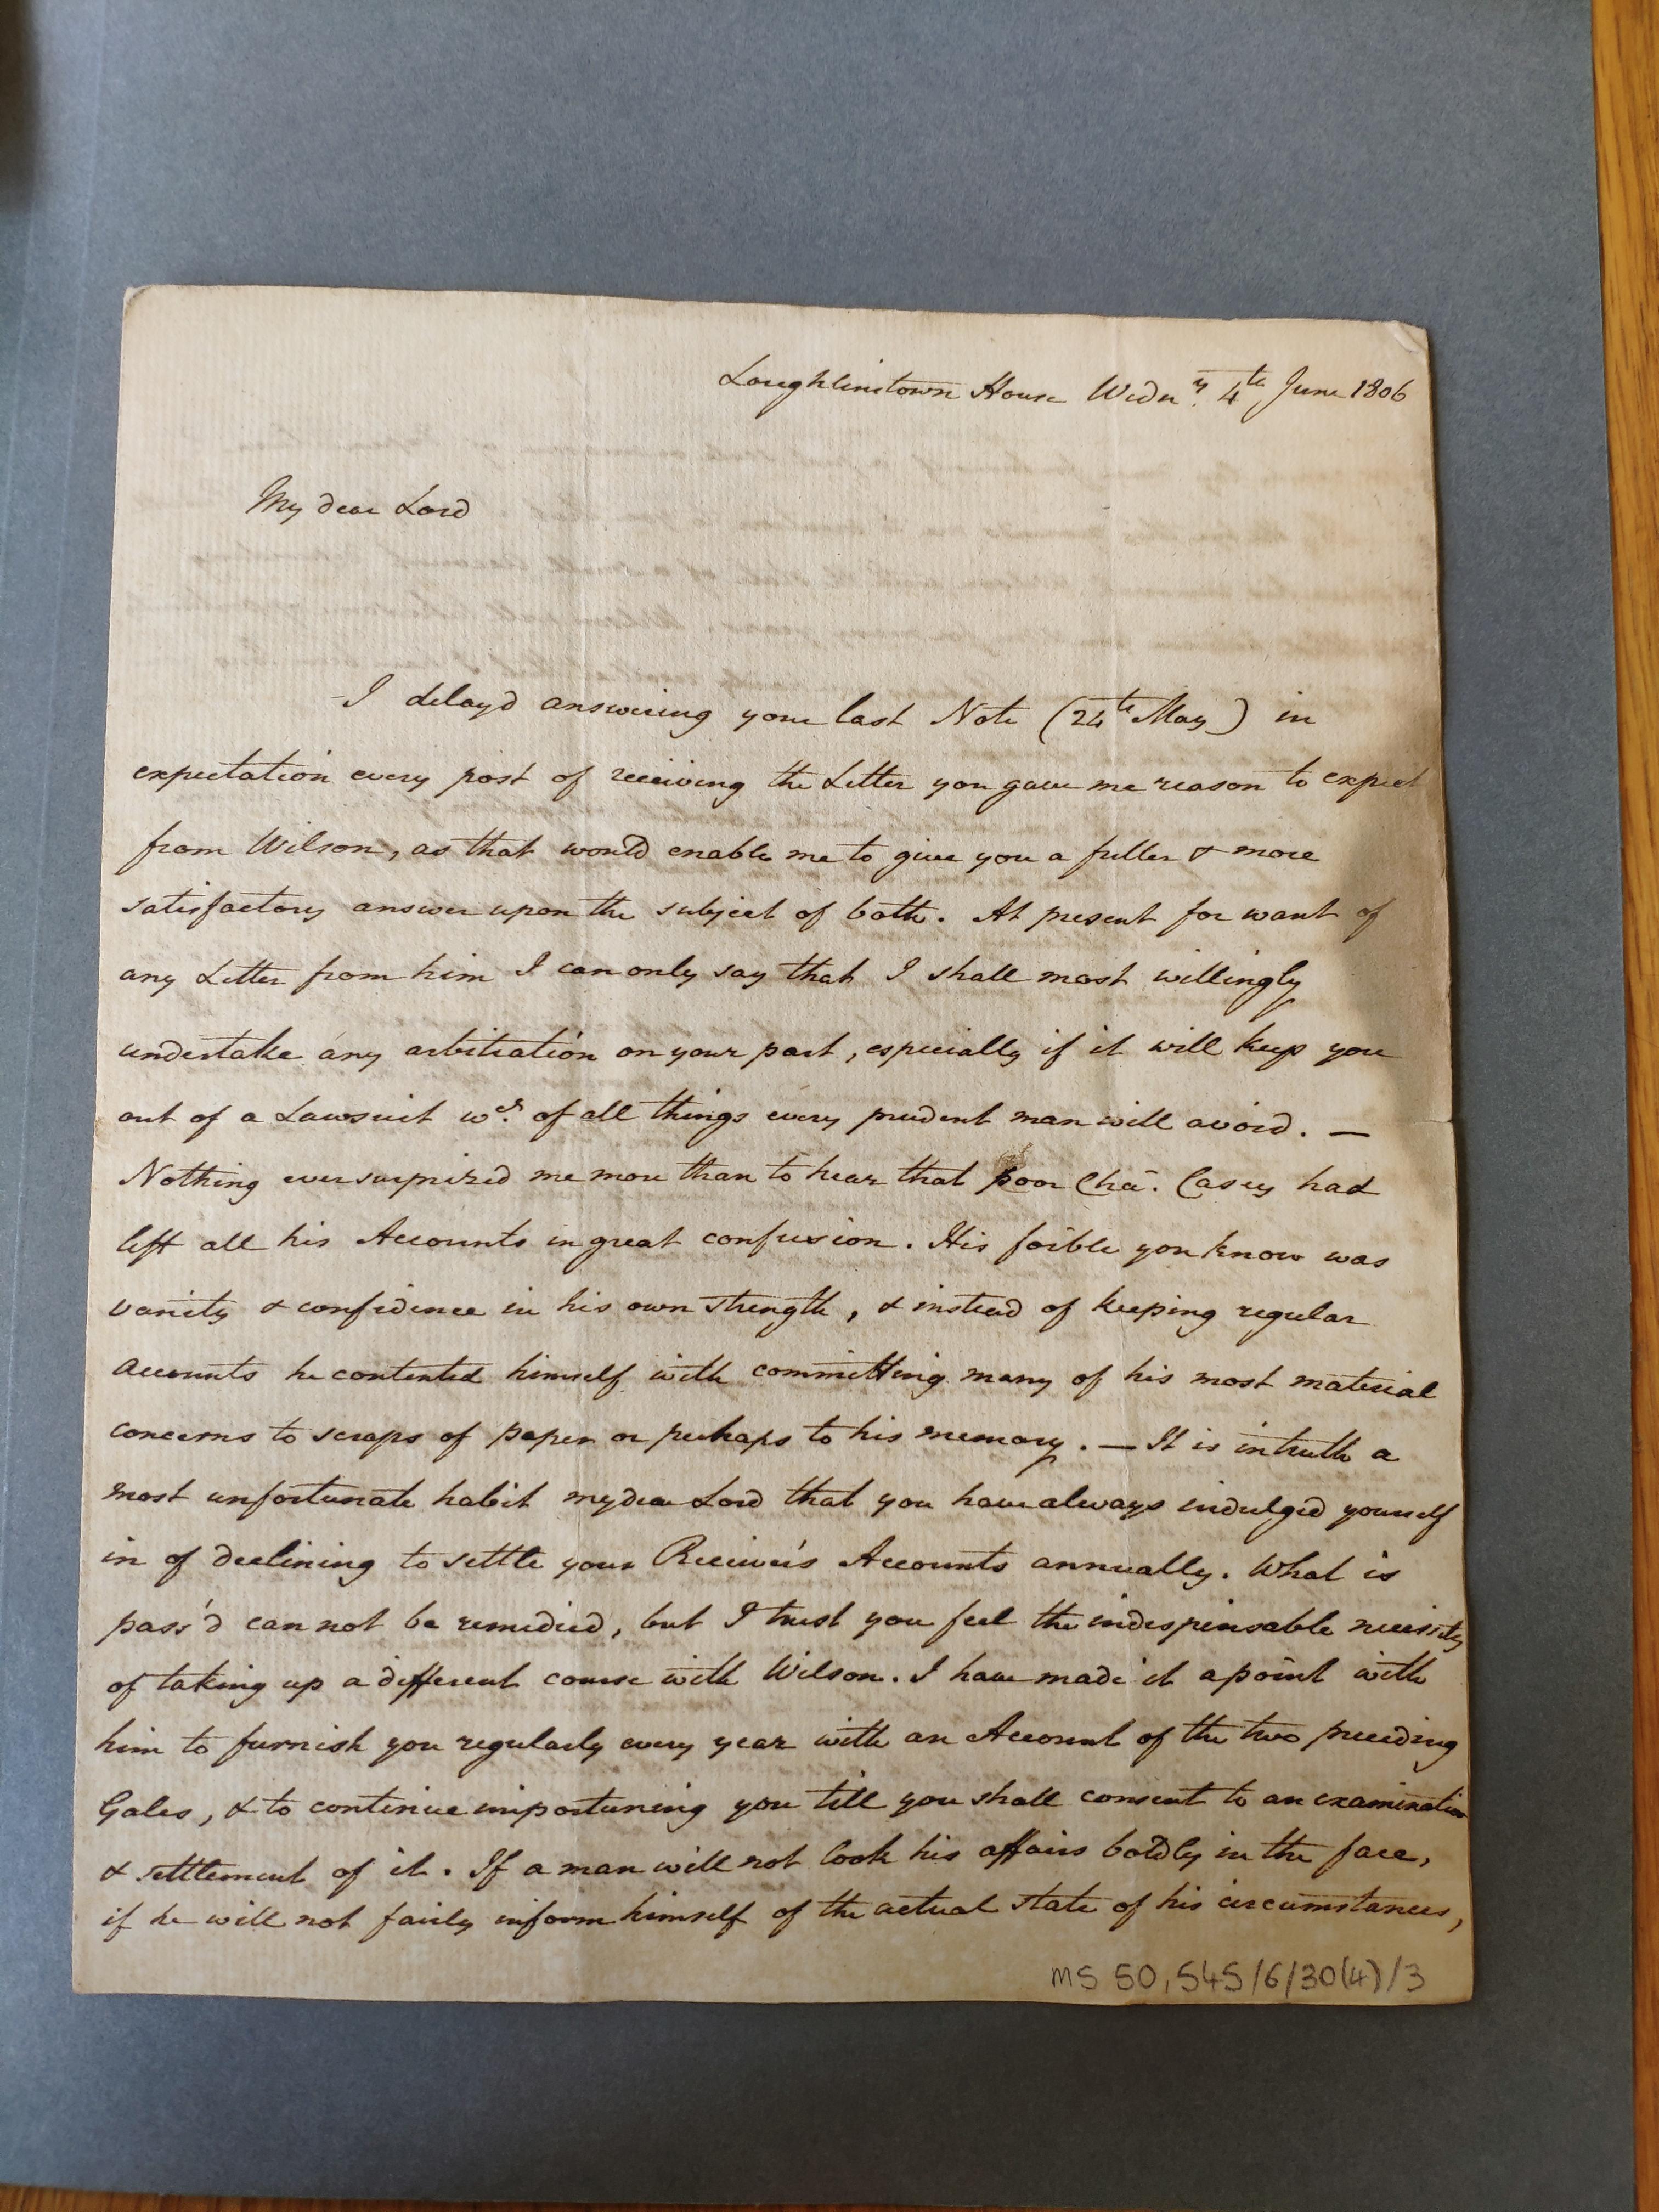 Loughlinstown House Wedny. 4th June 1806
My dear Lord
I delayd answering your last Note (24th May) in
expectation every post of receiving the Letter you gave me reason to expect
from Wilson, as that would enable me to give you a fuller & more
satisfactory answer upon the subject of both. At present for want of
any Letter from him I can only say that I shall most willingly
undertake any arbitration on your part, especially if it will keep you
out of a Lawsuit wch. of all things every prudent man will avoid. —
Nothing ever surprized me more than to hear that poor Cha. Casey had
left all his Accounts in great confusion. His foible you know was
vanity & confidence in his own strength, & instead of keeping regular
accounts he contented himself with committing many of his most material
concerns to scraps of paper or perhaps to his memory. — It is in truth a
most unfortunate habit my dear Lord that you have always indulged yourself
in of declining to settle your Receiver's Accounts annually. What is
pass'd can not be remedied, but I trust you feel the indespensable necessity
of taking up a different course with Wilson. I have made it a point with
him to furnish you regularly every year with an Account of the two preceding
Gales, & to continue importuning you till you shall consent to an examination
& settlement of it. If a man will not look his affairs boldly in the face,
if he will not fairly inform himself of the actual state of his circumstances,
MS 50,545/6/30(4)/3